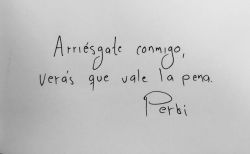 Arriésgate conmigo,
verás que vale la pena.
Perbi